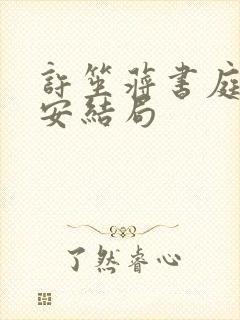 許笙蔣書庭
安結局
了然睿心